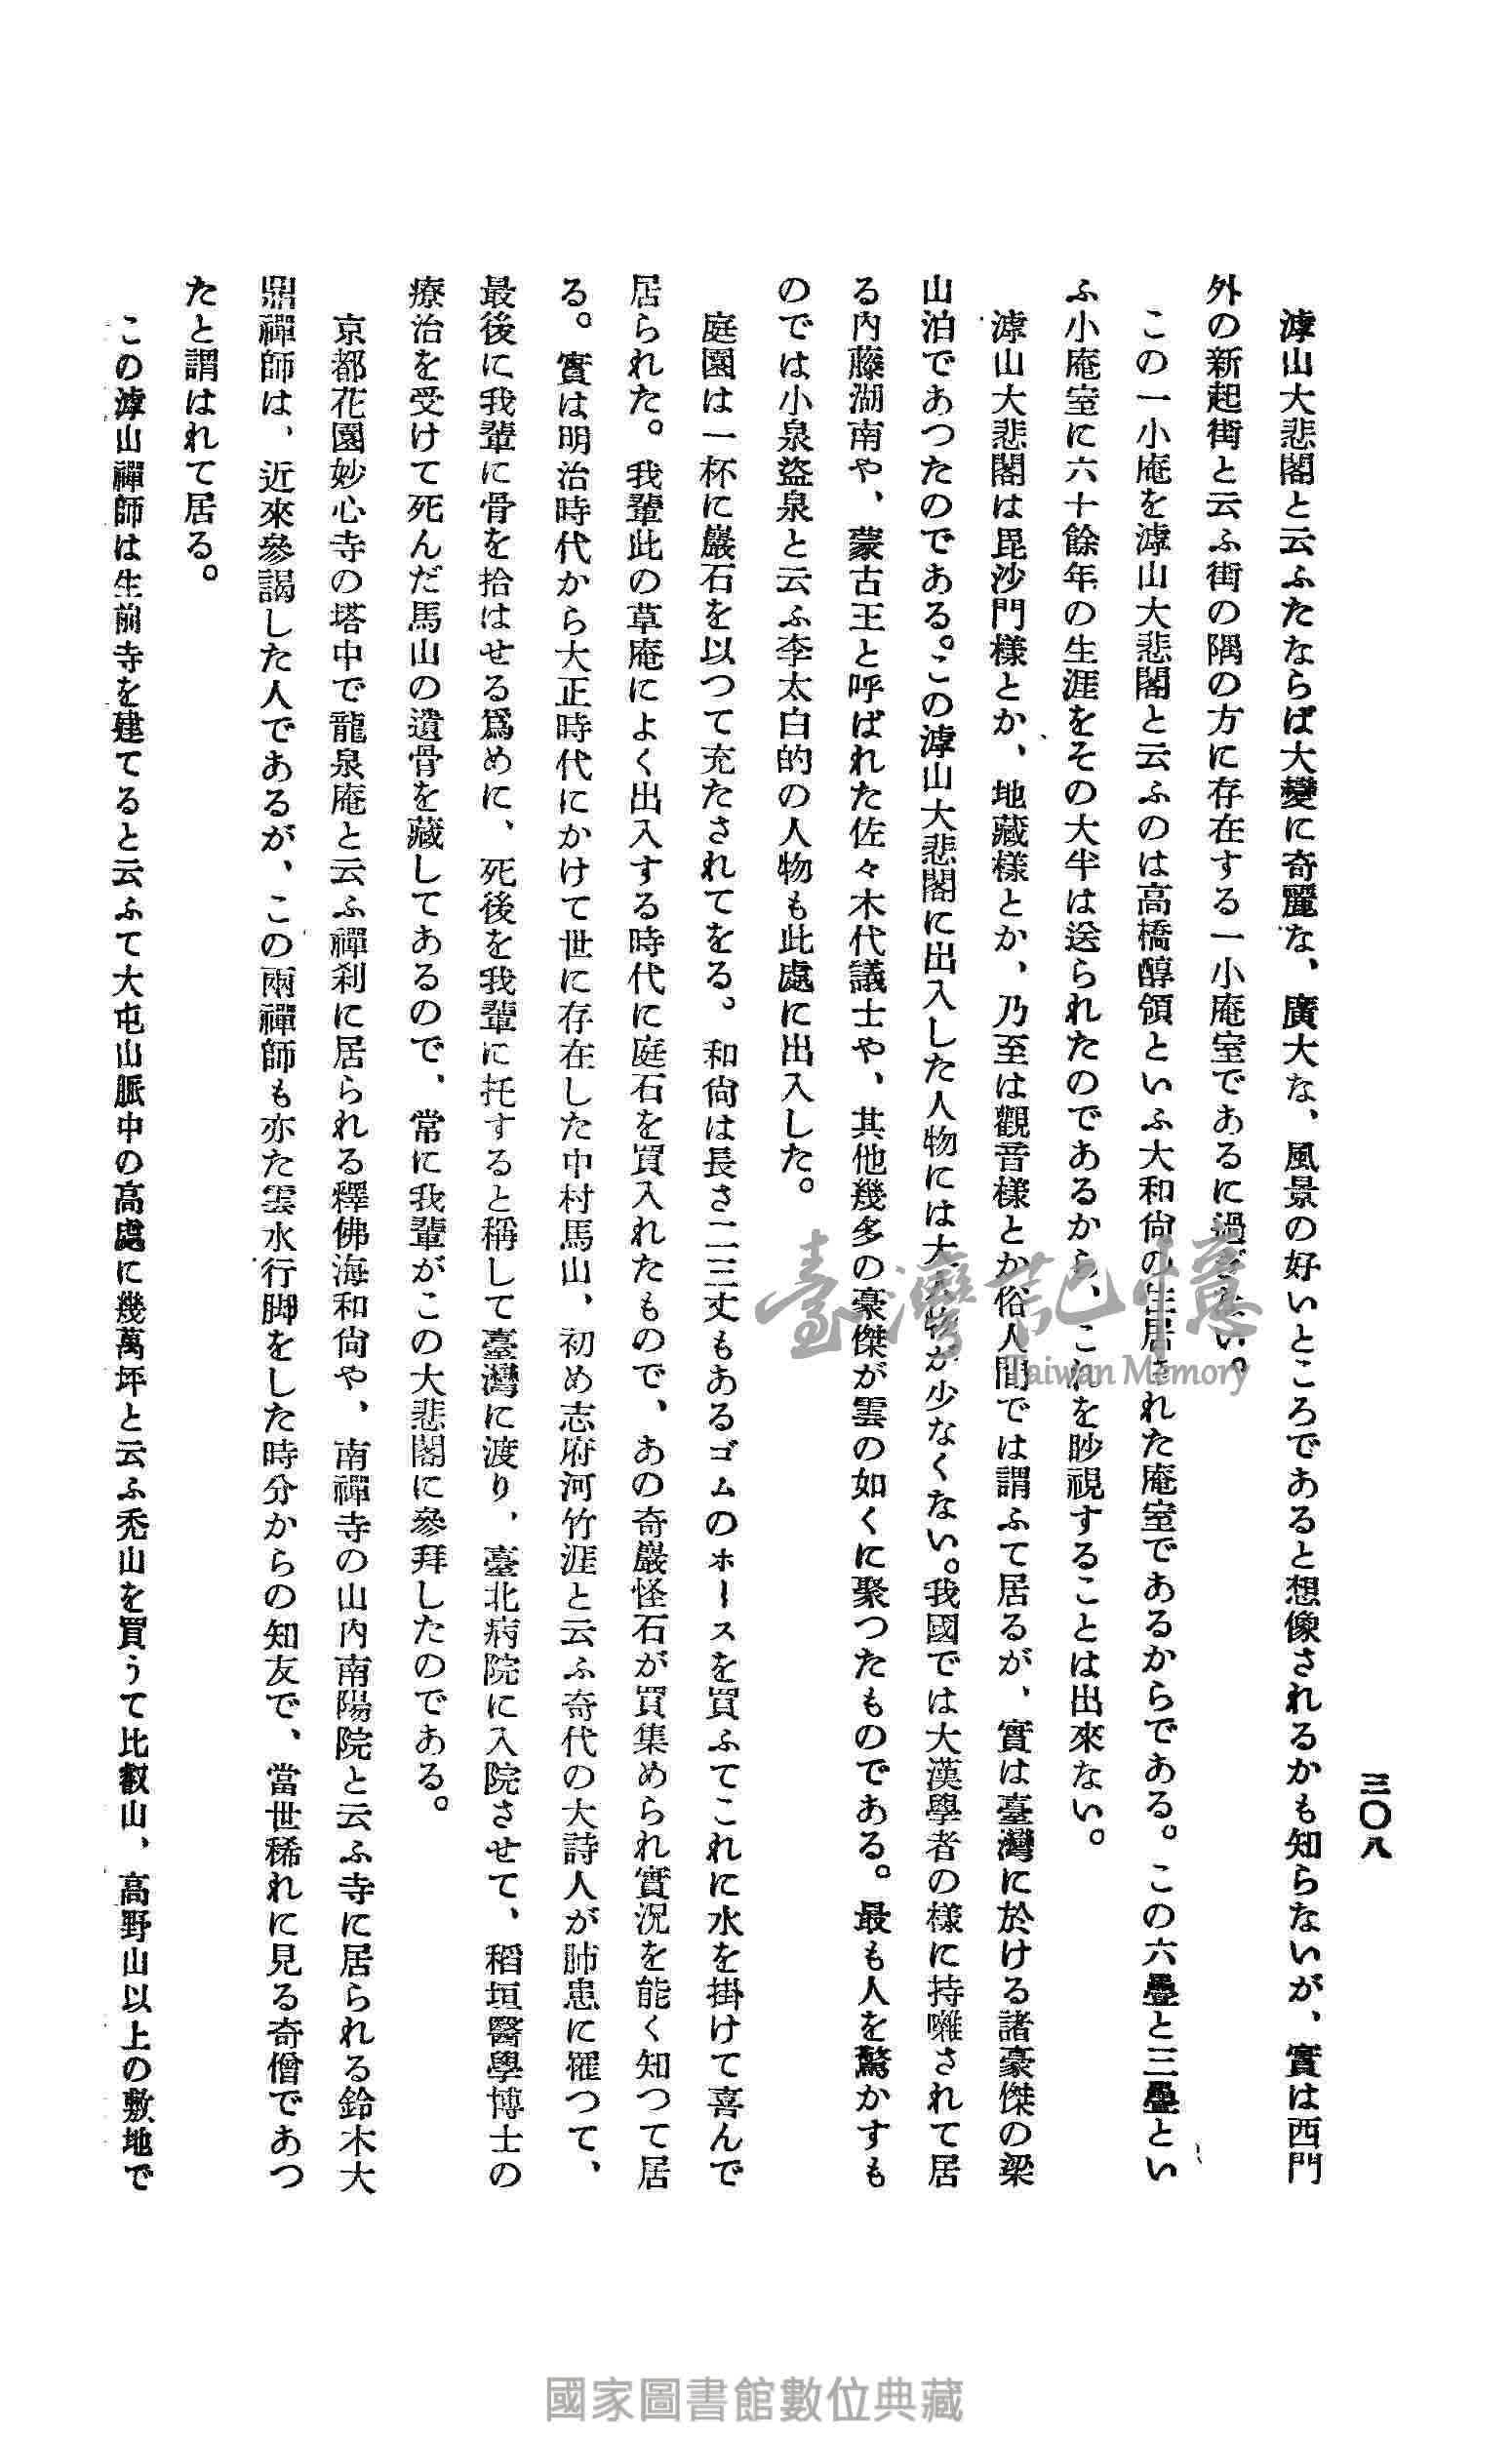 三〇八
滹山大悲閣と云ふたならば大變に奇麗な、廣大な、風景の好いところであると想像されるかも知らないが、實は西門
外の新起街と云ふ街の隅の方に存在する一小庵室であるに過ぎない。
この一小庵を滹山大悲閣と云ふのは高橋醇領といふ大和尙の生居された庵室であるからである。この六疊と三疊とい
ふ小庵室に六十餘年の生涯をその大半は送られたのであるから、これを眇視することは出來ない。
滹山大悲閣は毘沙門樣とか、地藏樣とか、乃至は觀音樣とか俗人間では謂ふて居るが、實は臺灣に於ける諸豪傑の梁
山泊であつたのである。この滹山大悲閣に出入した人物には大人物が少なくない。我國では大漢學者の樣に持囃されて居
る內藤湖南や、蒙古王と呼ばれた佐々木代議士や、其他幾多の豪傑が雲の如くに聚つたものである。最も人を驚かすも
のでは小泉盜泉と云ふ李太白的の人物も此處に出入した。
庭園は一杯に巖石を以つて充たされてをる。和尙は長さ二三丈もあるゴムのホースを買ふてこれに水を掛けて喜んで
居られた。我輩此の草庵によく出入する時代に庭石を買入れたもので、あの奇巖怪石が買集められ實況を能く知つて居
る。實は明治時代から大正時代にかけて世に存在した中村馬山、初め志府河竹涯と云ふ奇代の大詩人が肺患に罹つて、
最後に我輩に骨を拾はせる爲めに、死後を我輩に托すると稱して臺灣に渡り、臺北病院に入院させて、稻垣醫學博士の
療治を受けて死んだ馬山の遺骨を藏してあるので、常に我輩がこの大悲閣に參拜したのである。
京都花園妙心寺の塔中で龍泉庵と云ふ禪刹に居られる釋佛海和尙や、南禪寺の山內南陽院と云ふ寺に居られる鈴木大
鼎禪師は、近來參謁した人であるが、この兩禪師も亦た雲水行脚をした時分からの知友で、當世稀れに見る奇僧であつ
たと謂はれて居る。
この滹山禪師は生前寺を建てると云ふて大屯山脈中の高處に幾萬坪と云ふ禿山を買うて比叡山、高野山以上の敷地で
臺灣記憶
Taiwan Memory
國家圖書館數位典藏